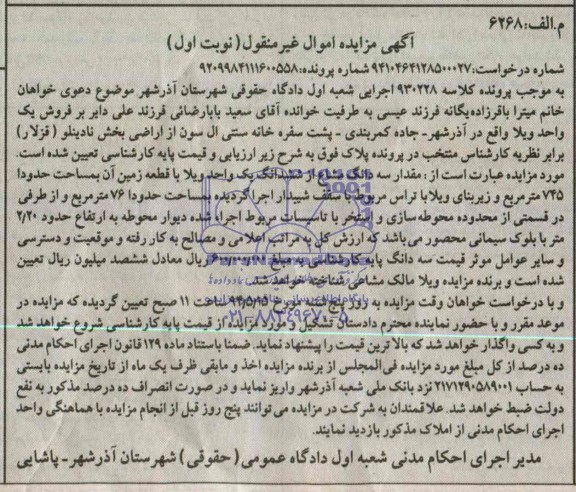 م.الف:۶۲۶۸
آگهی مزایده اموال غیرمنقول (نوبت اول)
شماره درخواست:۹۴۱۰۴۶۴۱۲۸۵۰۰۰۲۷ شماره پرونده:۹۲۰۹۹۸۴۱۱۱۶۰۰۵۵۸
به موجب پرونده کلاسه ۹۳۰۲۲۸ اجرایی شعبه اول دادگاه حقوقی شهرستان آذرشهر موضوع دعوی خواهان
خانم میترا باقرزاده یگانه فرزند عیسی به طرفیت خوانده آقای سعید بابارضائی فرزند علی دایر بر فروش یک
واحد ویلا واقع در آذرشهر- جاده کمربندی - پشت سفره خانه سنتی ال سون از اراضی بخش نادینلو (قزلار)
برابر نظریه کارشناس منتخب در پرونده پلاک فوق به شرح زیر ارزیابی و قیمت پایه کارشناسی تعیین شده است.
مورد مزایده عبارت است از: مقدار سه دانگ مشاع از ششدانگ یک واحد ویلا با قطعه زمین آن بمساحت حدودا
۷۴۵ مترمربع و زیربنای ویلا با تراس مربوط با سقف شیبدار اجرا گردیده بمساحت حدودا ۷۶ مترمربع و از طرفی
در قسمتی از محدوده محوطه سازی و استخر با تاسیسات مربوط اجراء شده دیوار محوطه به ارتفاع حدود ۲/۲۰
متر با بلوک سیمانی محصور می باشد که ارزش کل به مراتب اعلامی و مصالح به کار رفته و موقعیت و دسترسی
و سایر عوامل موثر قیمت سه دانگ پایه کارشناسی به مبلغ ریال معادل ششصد میلیون ریال تعیین
شده است و برنده مزایده ویلا مالک مشاعی شناخته خواهد شد.
و با درخواست خواهان وقت مزایده به روز مورخ ۹۴/۵/۱۵ ساعت ۱۱ صبح تعیین گردیده که مزایده در
موعد مقرر و با حضور نماینده محترم دادستان تشکیل و مورد مزایده از قیمت پایه کارشناسی شروع خواهد شد
و به کسی واگذار خواهد شد که بالاترین قیمت را پیشنهاد نماید. ضمنا باستناد ماده ۱۲۹ قانون اجرای احکام مدنی
ده درصد از کل مبلغ مورد مزایده فی المجلس از برنده مزایده اخذ و مابقی ظرف یک ماه از تاریخ مزایده بایستی
به حساب ۲۱۷۱۲۹۰۵۸۹۰۰۱ نزد بانک ملی شعبه آذرشهر واریز نماید و در صورت انصراف ده درصد مذکور به نفع
دولت ضبط خواهد شد. علاقمندان به شرکت در مزایده می توانند پنج روز قبل از انجام مزایده با هماهنگی واحد
اجرای احکام مدنی از املاک مذکور بازدید نمایند.
مدیر اجرای احکام مدنی شعبه اول دادگاه عمومی (حقوقی) شهرستان آذرشهر - پاشایی